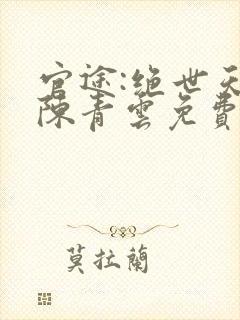 官途:绝世天
陈青雲免費
莫拉蘭